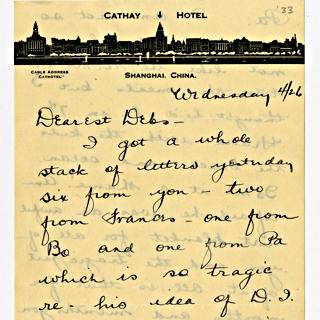 CATHAY HOTEL
'33
CABLE ADDRESS
"CATHOTEL"
SHANGHAI, CHINA.
Wednesday 4/26
Dearest Debs—
I got a whole
stack of letters yesterday
six from you - two
from Frances - one from
Bo and one from Pa
which is so tragic
re - his idea of D. I.